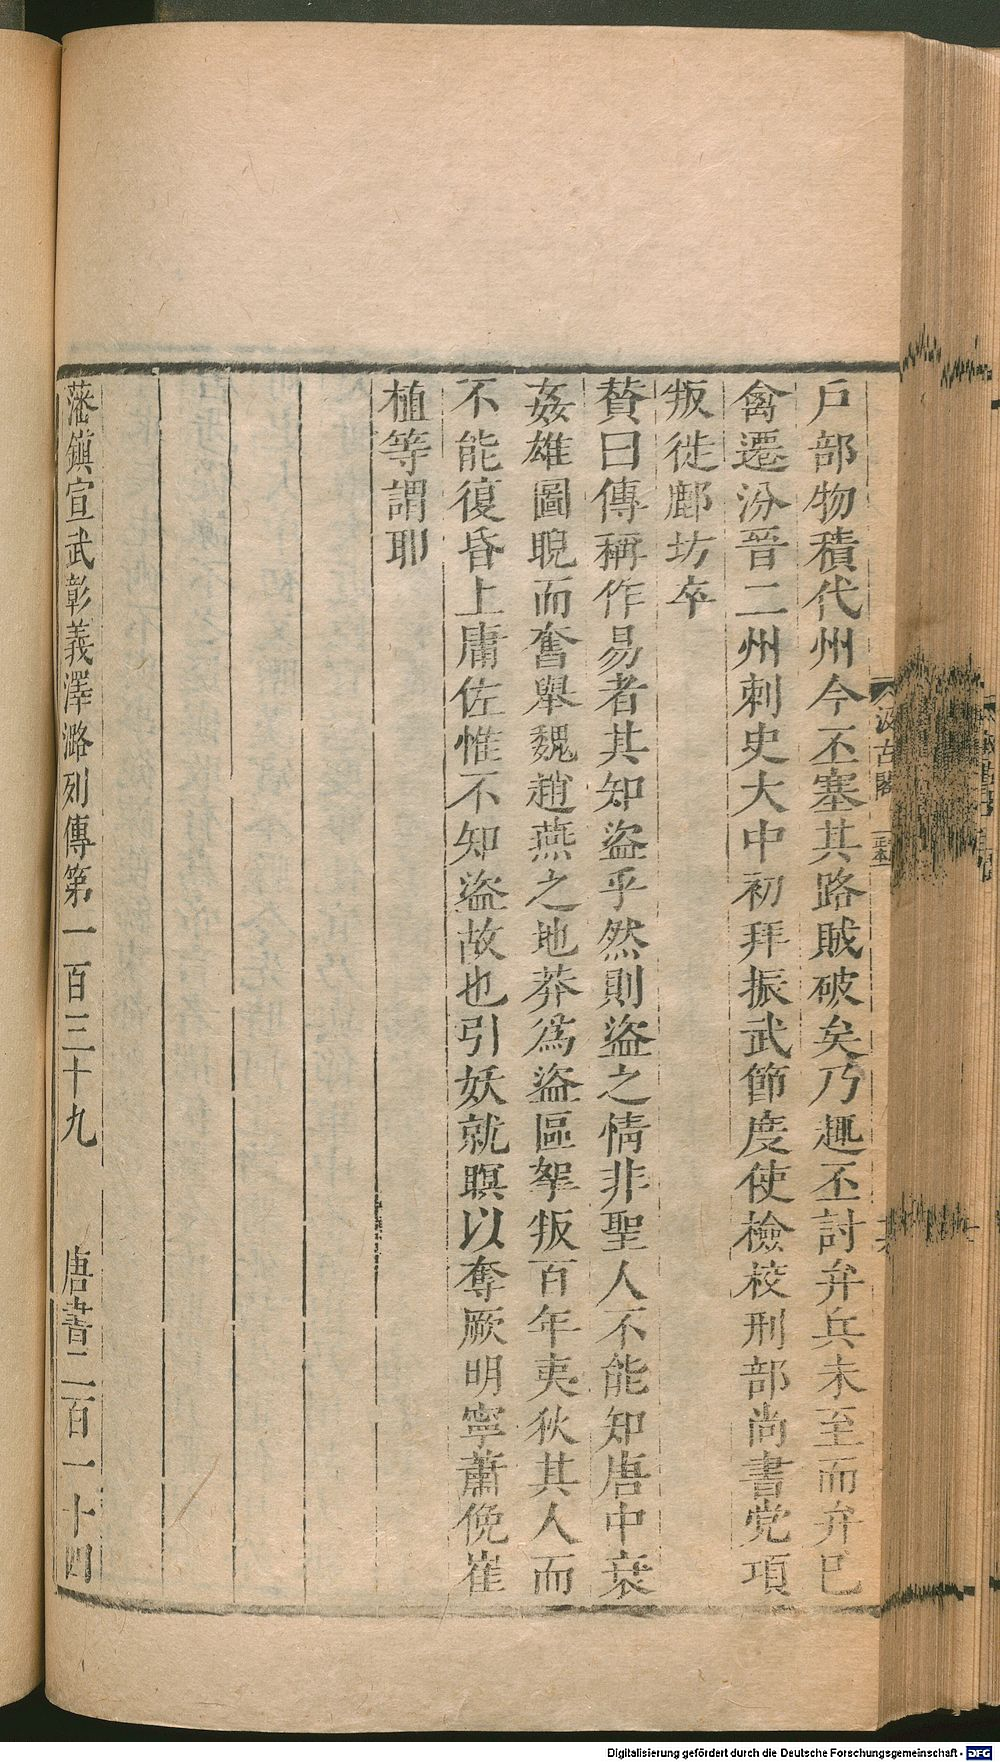 戶部物積代州今丕塞其路賊破矣乃趣丕討弁兵未至而弁已
禽遷汾晉二州刺史大中初拜振武節度使檢校刑部尚書党項
叛徙鄜坊卒
贊曰傳稱作易者其知盜乎然則盜之情非聖人不能知唐中衰
姦雄圖睨而奮舉魏趙燕之地莽爲盜區挐叛百年夷狄其人而
不能復昏上庸佐惟不知盜故也引妖就瞑以奪厥明寧蕭俛崔
植等謂耶
藩鎭宣武彰義澤潞列傳第一百三十九 唐書二百一十四
汲古閣
正本
Digitalisierung gefördert durch die Deutsche Forschungsgemeinschaft - DFG